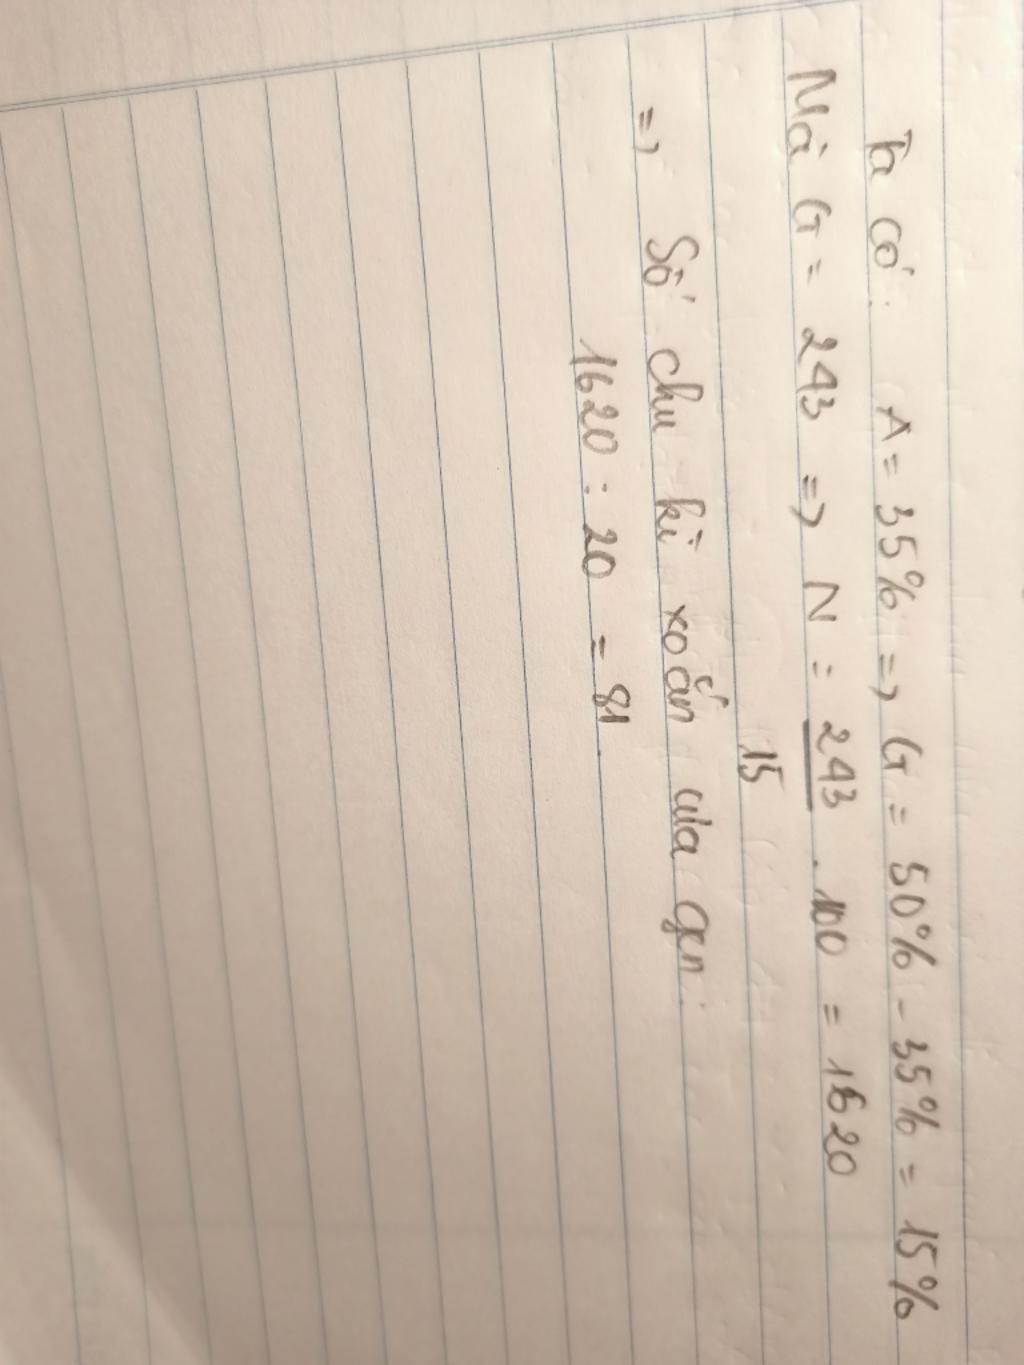 Ta có: A = 35% => G = 50% - 35% = 15%
Mà G = 243 => N = 243 . 100 = 1620
15
=> Số chu kì xoắn của gen:
1620 : 20 = 81